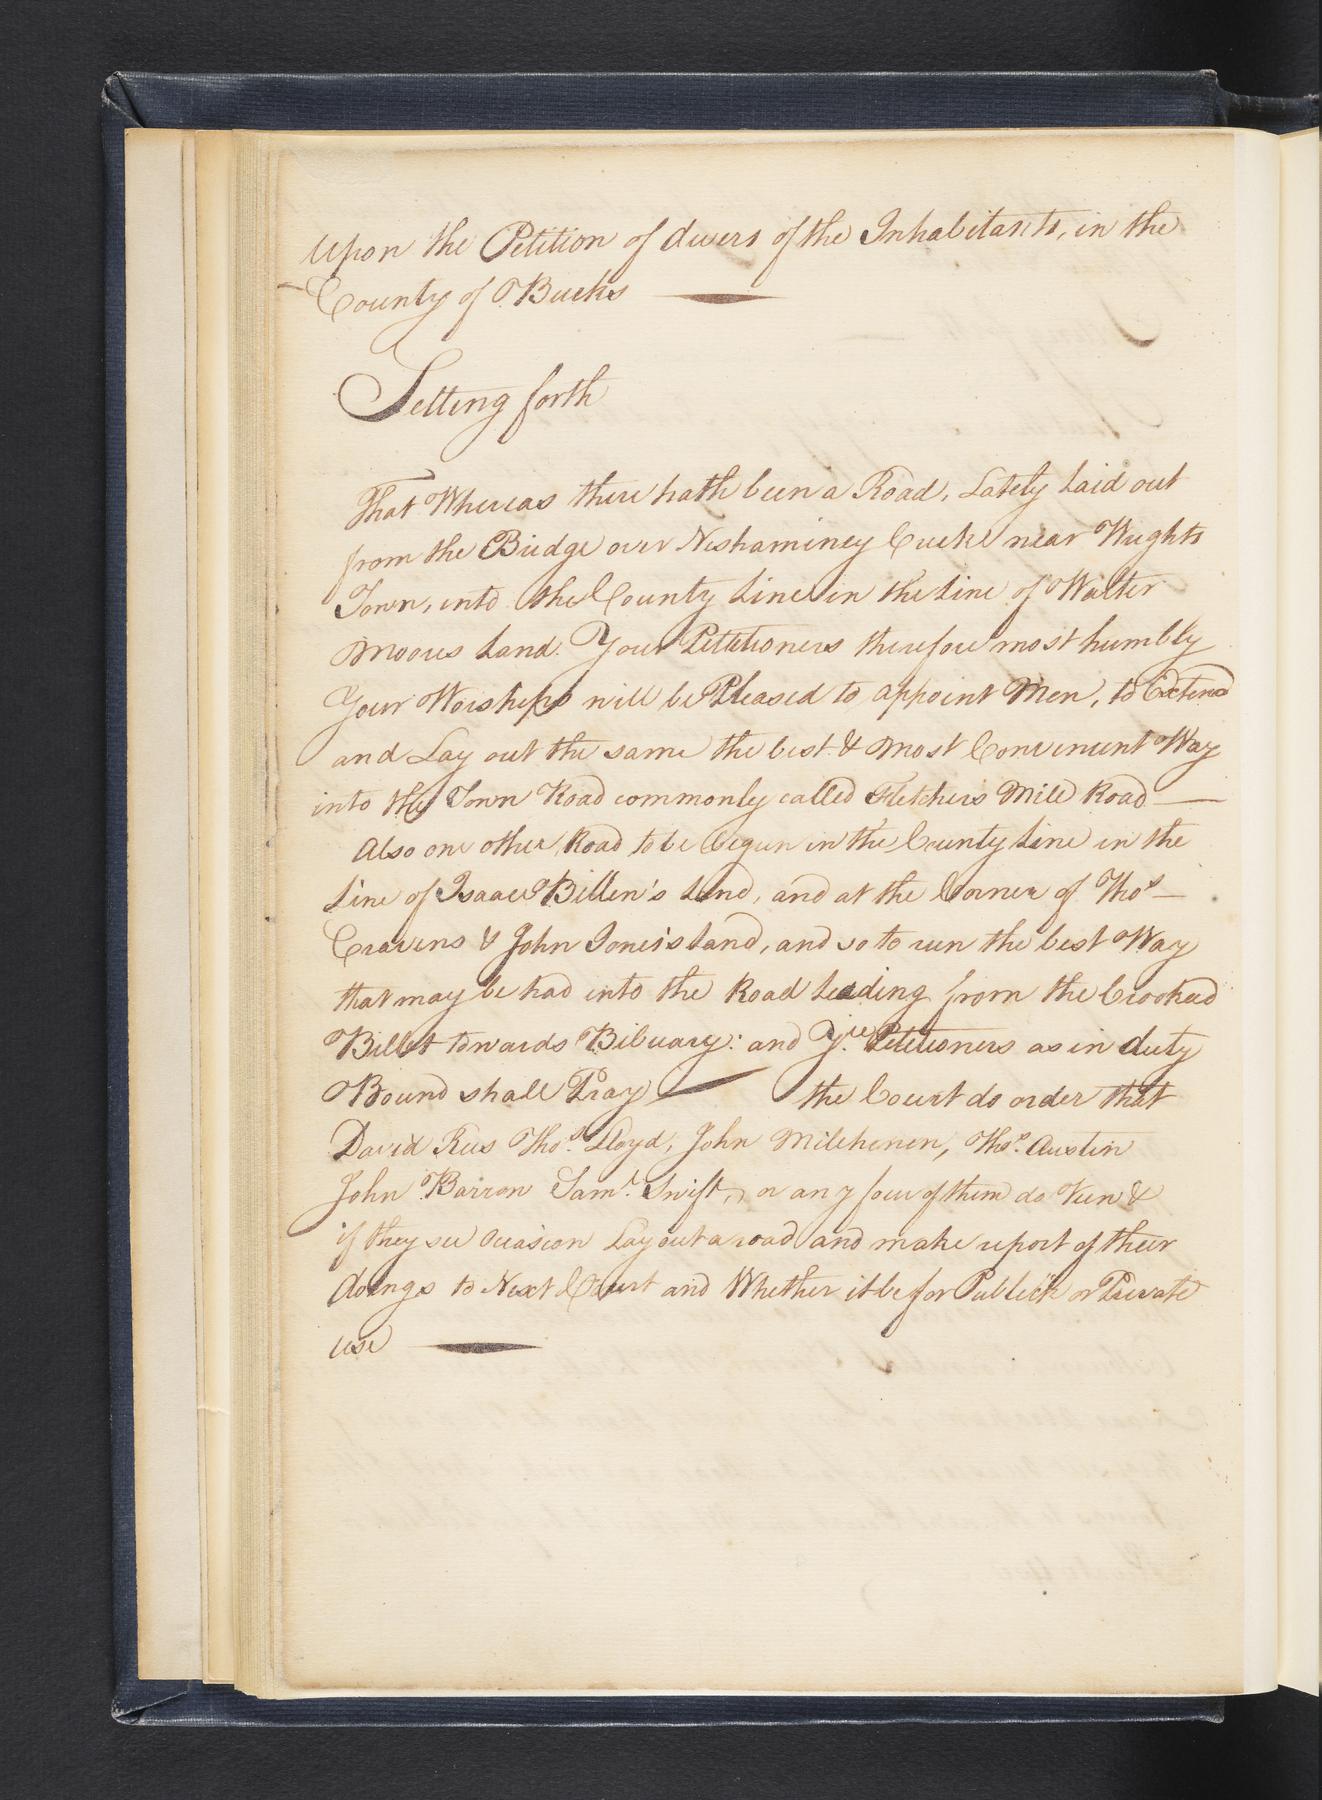 Upon the Petition of divers of the Inhabitants, in the
County of Bucks
Setting forth
That Whereas there hath been a Road, Lately Laid out
from the Bridge over Neshaminey Creeke near Wrights
Town, into the County Line in the Line of Walter
Moores Land. Your Petitioners therefore most humbly
Your Worships will be Pleased to appoint Men, to Extend
and Lay out the same the best & most Convenient Way
into the Town Road commonly called Fletchers Mill Road
Also one other Road to be begun in the County Line in the
Line of Isaac Billen's Land, and at the Corner of Thos
Cravens & John Jones's Land, and so to run the best Way
that may be had into the Road Leading from the Crooked
Billet towards Bibuary: and Yr. Petitioners as in duty
Bound shall Pray the Court do order that
David Rees Thos. Lloyd, John Milehenen, Thos. Austin
John Barron Saml. Swift, or any four of them do View &
if they see Occasion Lay out a road and make report of their
doings to Next Court and Whether it be for Publick or Private
use